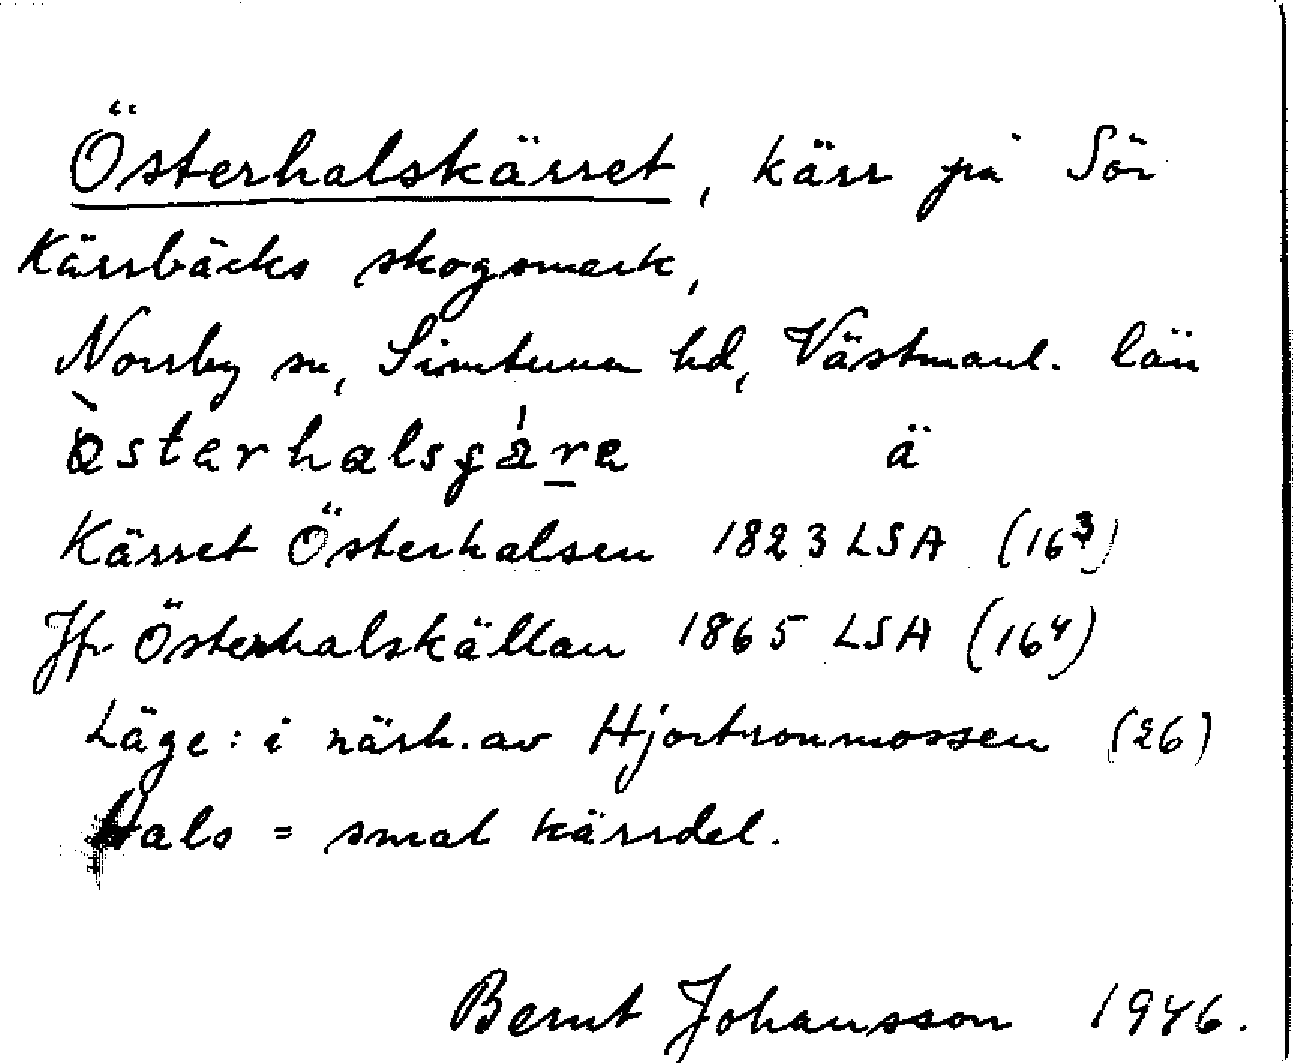 Österhalskärret, kärr på Sör
Kärrbäcks skogsmark,
Norrby sn, Simtuna hd, Västmanl. län
ä
Kärret Österhalsen 1823 LSA (16³)
Jfr Österhalskällan 1865 LSA (16⁴)
Läge: i närh. av Hjortronmossen (26)
Hals = smal kärrdel.
Bernt Johansson 1946.